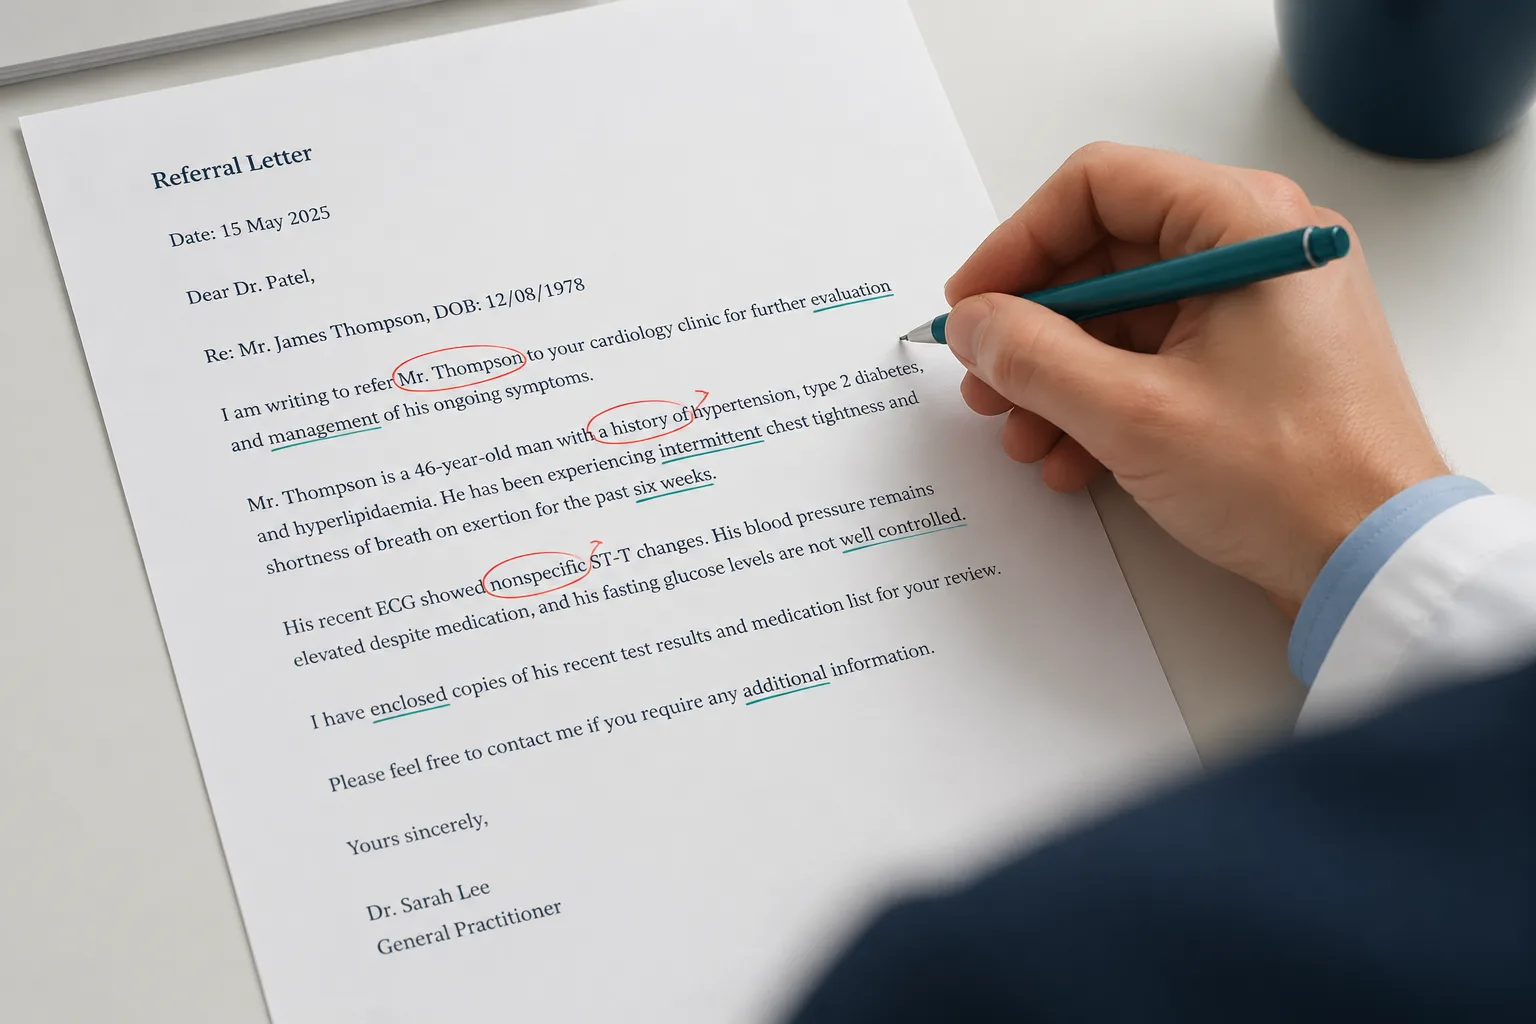 Referral Letter
Date: 15 May 2025
Dear Dr. Patel,
Re: Mr. James Thompson, DOB: 12/08/1978
I am writing to refer Mr. Thompson to your cardiology clinic for further evaluation
and management of his ongoing symptoms.
Mr. Thompson is a 46-year-old man with a history of hypertension, type 2 diabetes,
and hyperlipidaemia. He has been experiencing intermittent chest tightness and
shortness of breath on exertion for the past six weeks.
His recent ECG showed nonspecific ST-T changes. His blood pressure remains
elevated despite medication, and his fasting glucose levels are not well controlled.
I have enclosed copies of his recent test results and medication list for your review.
Please feel free to contact me if you require any additional information.
Yours sincerely,
Dr. Sarah Lee
General Practitioner